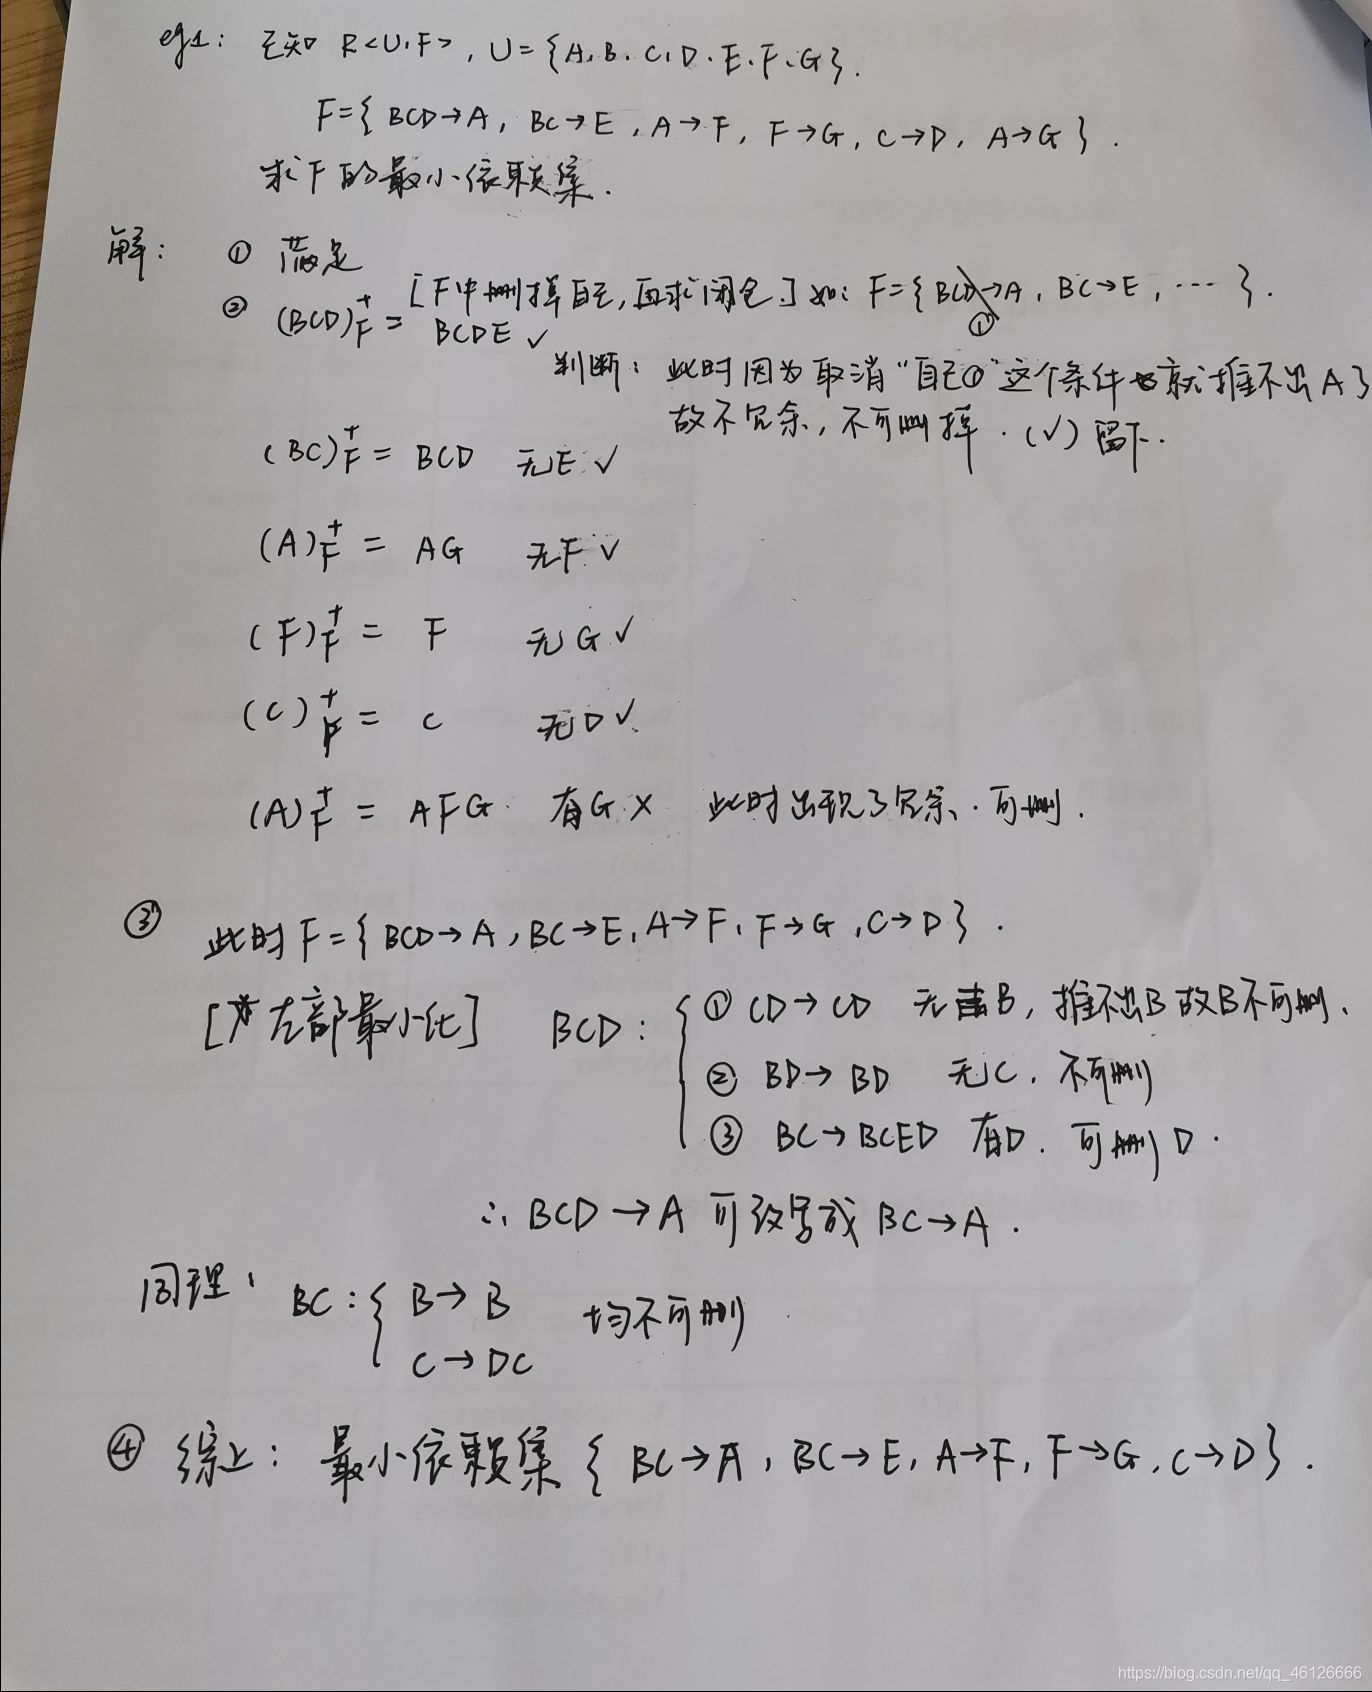 eg1: 已知 R<U,F>, U={A,B,C,D,E,F,G}.
F={BCD→A, BC→E, A→F, F→G, C→D, A→G}.
求F的最小依赖集.
解: ① 满足
② (BCD)⁺F = BCDE ✓ [F中删掉自己,再求闭包.] 如: F={BCD→A, BC→E, ···}.
①
判断: 此时因为取消“自己①”这个条件 就推不出A了
故不冗余, 不可删掉. (✓) 留下.
(BC)⁺F = BCD 无E ✓
(A)⁺F = AG 无F ✓
(F)⁺F = F 无G ✓
(C)⁺F = C 无D ✓
(A)⁺F = AFG. 有G × 此时出现了冗余. 可删.
③ 此时F={BCD→A, BC→E, A→F, F→G, C→D}.
[左部最小化] BCD: { ① CD→CD 无B, 推不出B故B不可删.
② BD→BD 无C. 不可删
③ BC→BCED 有D. 可删D.
∴ BCD→A 可改写成 BC→A.
同理: BC: { B→B 均不可删
C→DC
④ 综上: 最小依赖集 {BC→A, BC→E, A→F, F→G, C→D}.
https://blog.csdn.net/qq_46126666